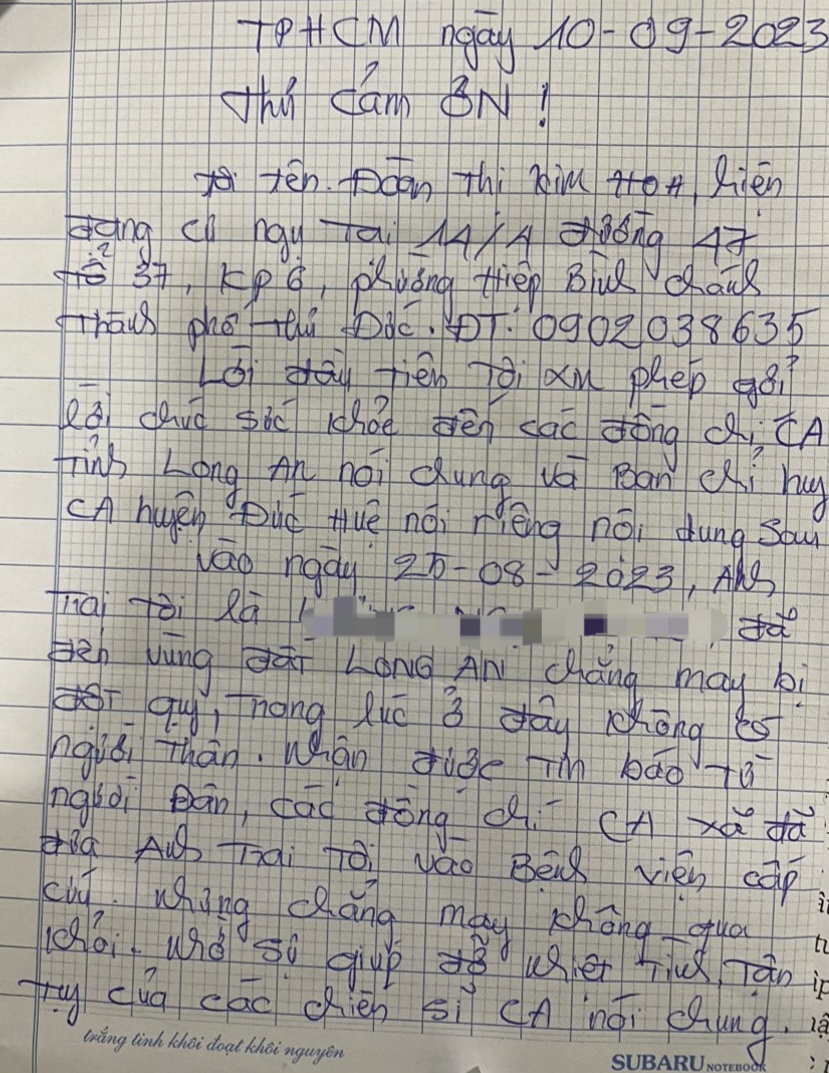 TPHCM ngày 10-09-2023
Thư Cảm ƠN!
Tôi tên. Đoàn Thị Kim HOA, hiện
đang cư ngụ Tại 14/4 đường 47
tổ 37, KP 6, phường Hiệp Bình chánh
Thành phố Thủ Đức. ĐT: 0902038635
Lời đầy tiên Tôi xin phép gởi
lời chúc sức khỏe đến các đồng chí CA
Tỉnh Long An nói chung và Ban chỉ huy
CA huyện Đức Huệ nói riêng nội dung sau
vào ngày 25-08-2023, Anh
Trai tôi là đã
đến vùng đất LONG AN chẳng may bị
đột quỵ, Trong lúc ở đây không có
người Thân. Nhận được Tin báo từ
người Dân, các đồng chí CA xã đã
đưa Anh Trai Tôi vào Bệnh viện cấp
cứu. Nhưng chẳng may không qua
khỏi. Nhờ sự giúp đỡ nhiệt Tình, Tận
Tụy của các chiến sĩ CA nói chung.
trắng tinh khôi đoạt khôi nguyên
SUBARU NOTEBOOK